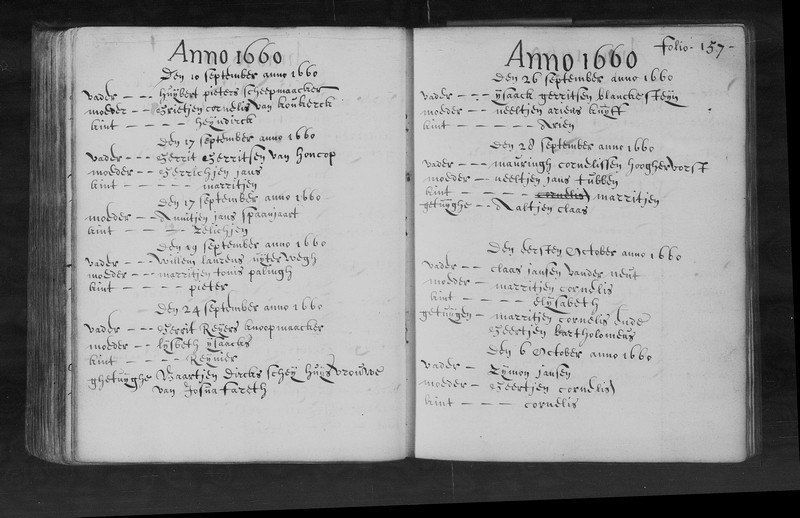 Anno 1660
Den 10 september anno 1660
vader - - - huijbert pieters scheepmaacker
moeder - - - Grietjen cornelis van koukerck
kint - - - - - - heijndirck
Den 17 september anno 1660
vader - - - Gerrit Gerritsen van Honcop
moeder - - - Gerrichjen jans
kint - - - - - - marritjen
Den 17 september anno 1660
moeder - - - Annitjen jans spaanjaart
kint - - - - - - Celichjen
Den 19 september anno 1660
vader - - - Willem laurens uijterwegh
moeder - - - marritjen tonis palingh
kint - - - - - pieter
Den 24 september anno 1660
vader - - - Gerrit Reijers knoopmaacker
moeder - - lijsbeth ijsaacks
kint - - - - - Reijnier
ghetuijghe Maartjen dircks scheij huijsvrouwe
van Josua fareth
Folio - 157 -
Anno 1660
Den 26 september anno 1660
vader - - - ijsaack gerritsen blanckesteijn
moeder - - - neeltjen ariens kuijff
kint - - - - - - Arien
Den 28 september anno 1660
vader - - - mauringh cornelissen hooghervorst
moeder - - neeltjen jans tubben
kint - - - - - cornelis marritjen
getuijghe - - Aaltjen claas
Den eersten October anno 1660
vader - - claas jansen vander neut
moeder - - marritjen cornelis
kint - - - - - - - Elijsabeth
getuijgen - marritjen cornelis ende
Geertjen bartholomeus
Den 6 October anno 1660
vader - - Sijmon jansen
moeder - - - Geertjen cornelis
kint - - - - - - cornelis